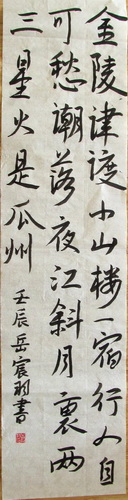 金陵津渡小山楼一宿行人自
可愁潮落夜江斜月裏两
三星火是瓜州
壬辰岳宸羽書